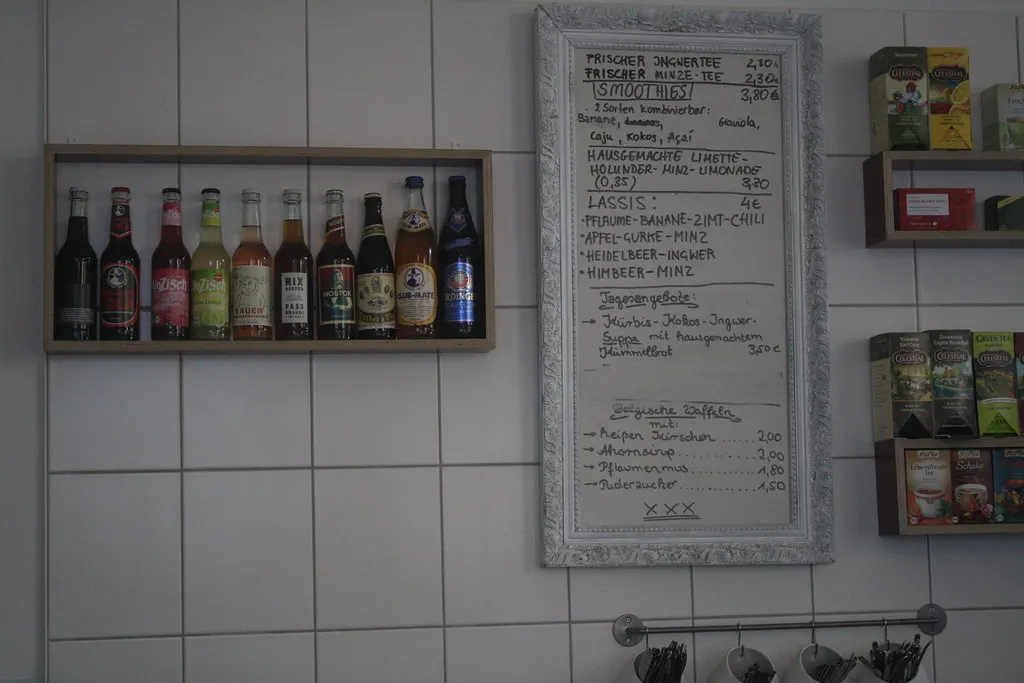 FRISCHER INGWERTEE 2,30€
FRISCHER MINZE-TEE 2,30€
SMOOTHIES 3,80€
2 Sorten kombinierbar:
Banane, Graviola,
Caju, Kokos, Açaí
HAUSGEMACHTE LIMETTE-
HOLUNDER-MINZ-LIMONADE
(0,35) 3,30
LASSIS: 4€
•PFLAUME-BANANE-ZIMT-CHILI
•APFEL-GURKE-MINZ
•HEIDELBEER-INGWER
•HIMBEER-MINZ
Tagesangebote:
→ Kürbis-Kokos-Ingwer-
Suppe mit hausgemachtem
Kümmelbrot 3,50€
Belgische Waffeln
mit:
→ heißen Kirschen ...... 2,00
→ Ahornsirup ...... 2,00
→ Pflaumenmus ...... 1,80
→ Puderzucker ...... 1,50
XXX
BioZisch
BioZisch
BAUER
RIX
FASS
WOSTOK
CLUB-MATE
ERDINGER
CELESTIAL
CELESTIAL
CELESTIAL
CELESTIAL
GREEN TEA
CELESTIAL
Lebensfreude
Tee
Schoko